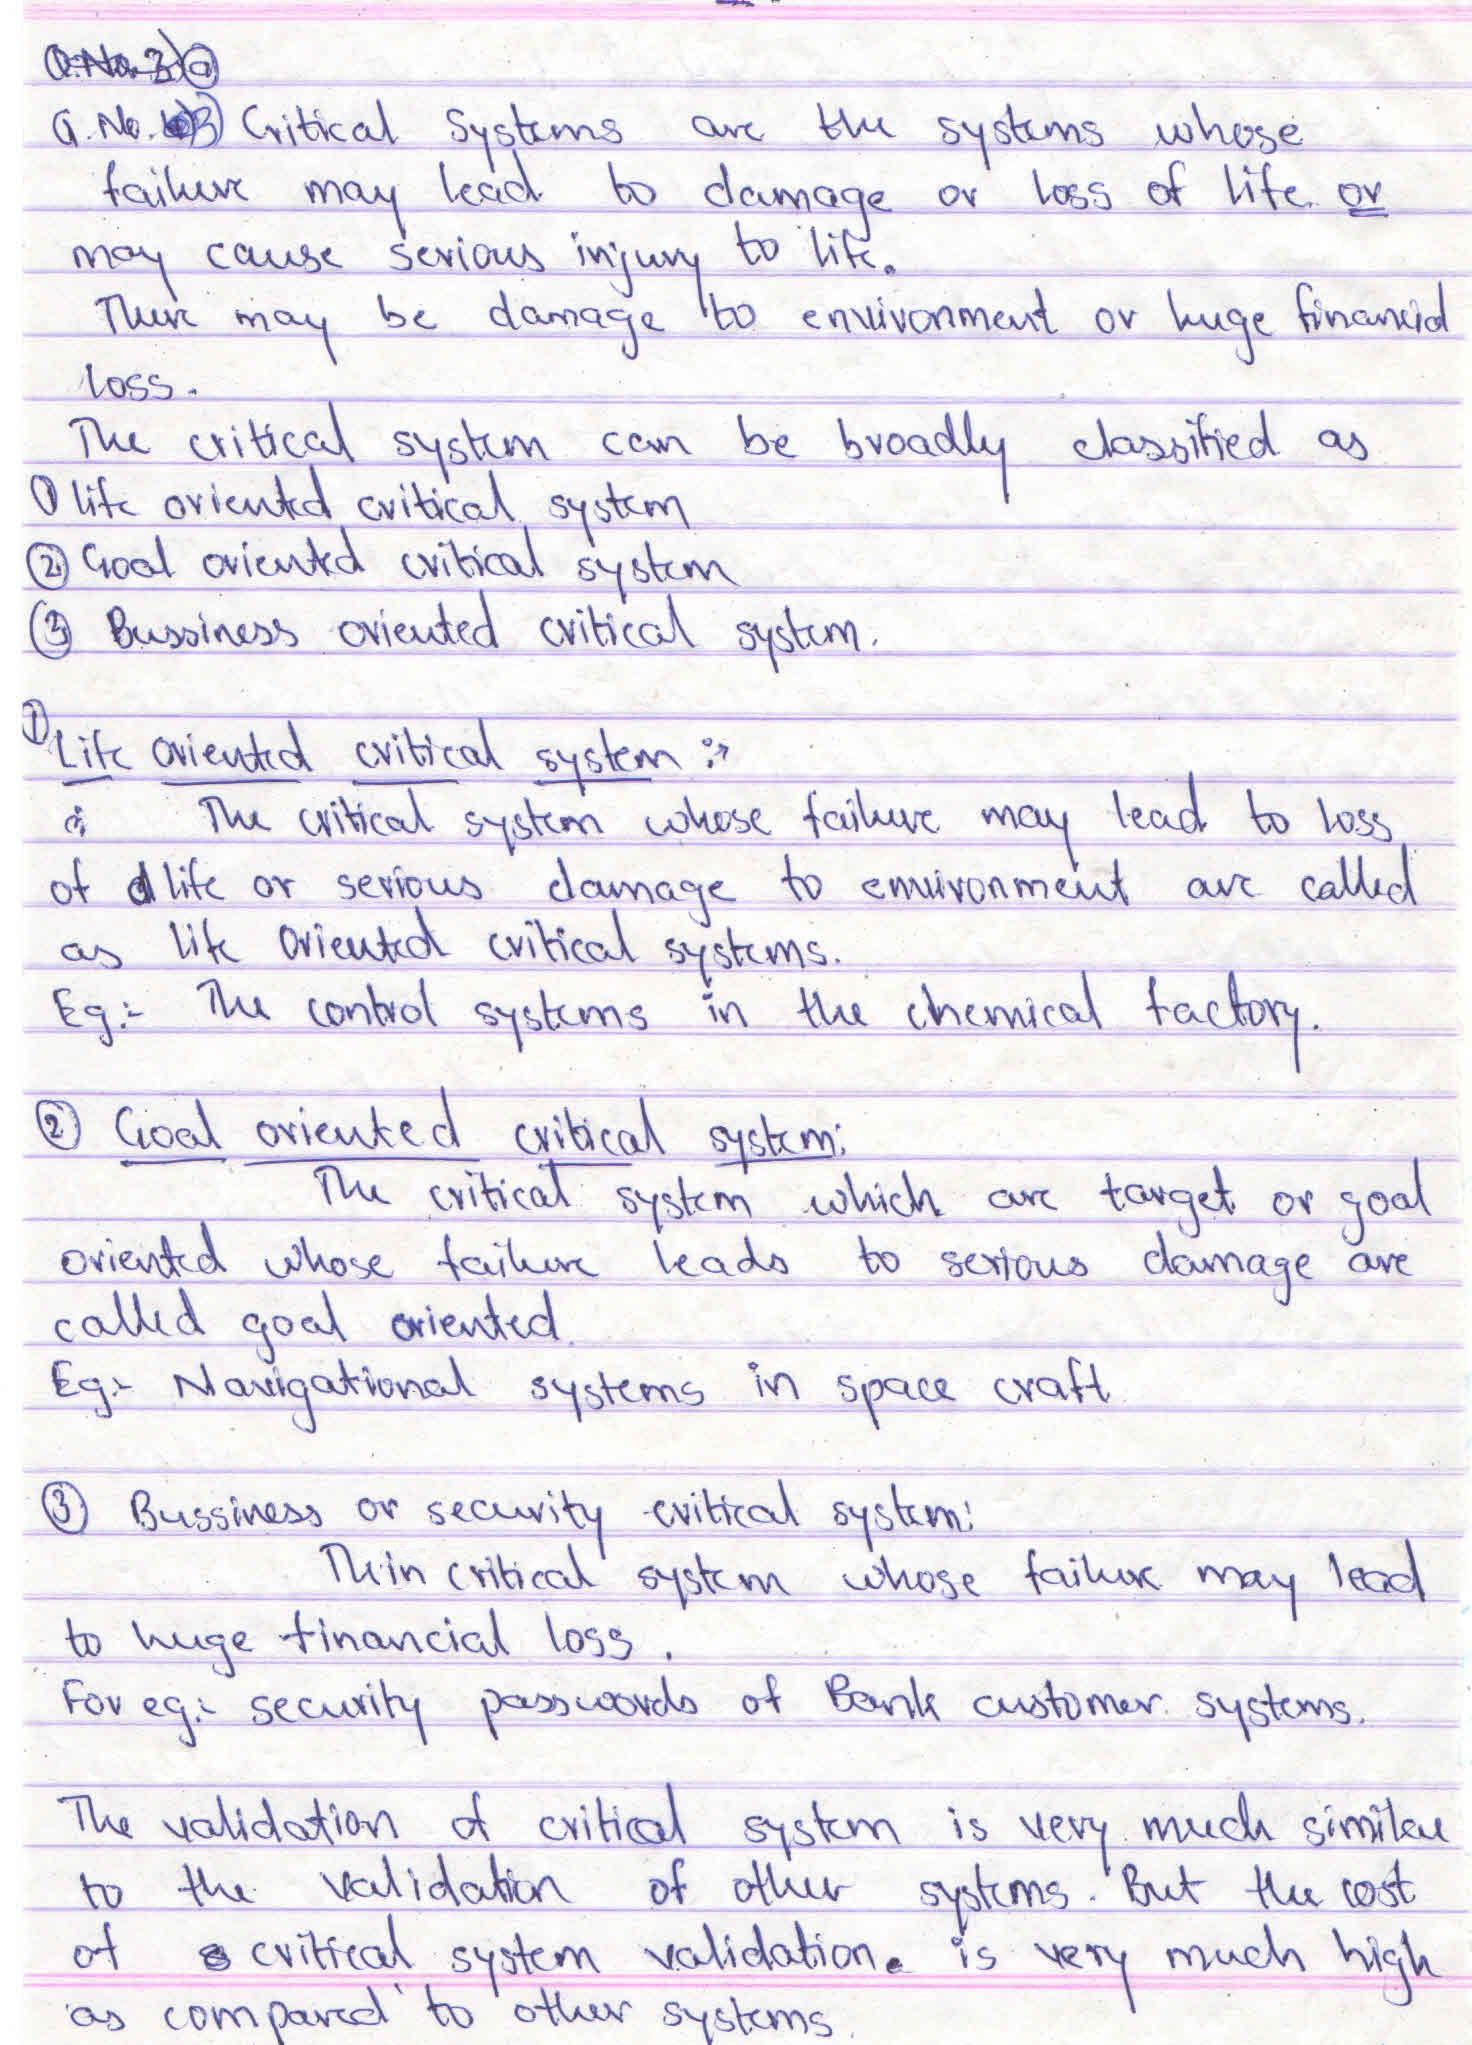 Q.No.3) a
Q.No. 3) Critical Systems are the systems whose
failure may lead to damage or loss of life or
may cause serious injury to life.
There may be damage to environment or huge financial
loss.
The critical system can be broadly classified as
① life oriented critical system
② Goal oriented critical system
③ Bussiness oriented critical system.
① Life oriented critical system :→
The critical system whose failure may lead to loss
of life or serious damage to environment are called
as life oriented critical systems.
Eg:- The control systems in the chemical factory.
② Goal oriented critical system:
The critical system which are target or goal
oriented whose failure leads to serious damage are
called goal oriented
Eg:- Navigational systems in space craft
③ Bussiness or security critical system:
critical system whose failure may lead
to huge financial loss.
For eg:- security passwords of Bank customer systems.
The validation of critical system is very much similar
to the validation of other systems. But the cost
of critical system validation. is very much high
as compared to other systems.